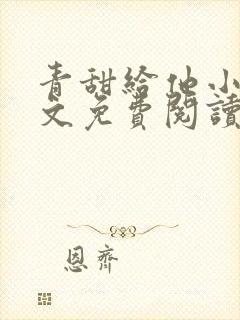 青甜給他小
文免費閱讀
恩齊